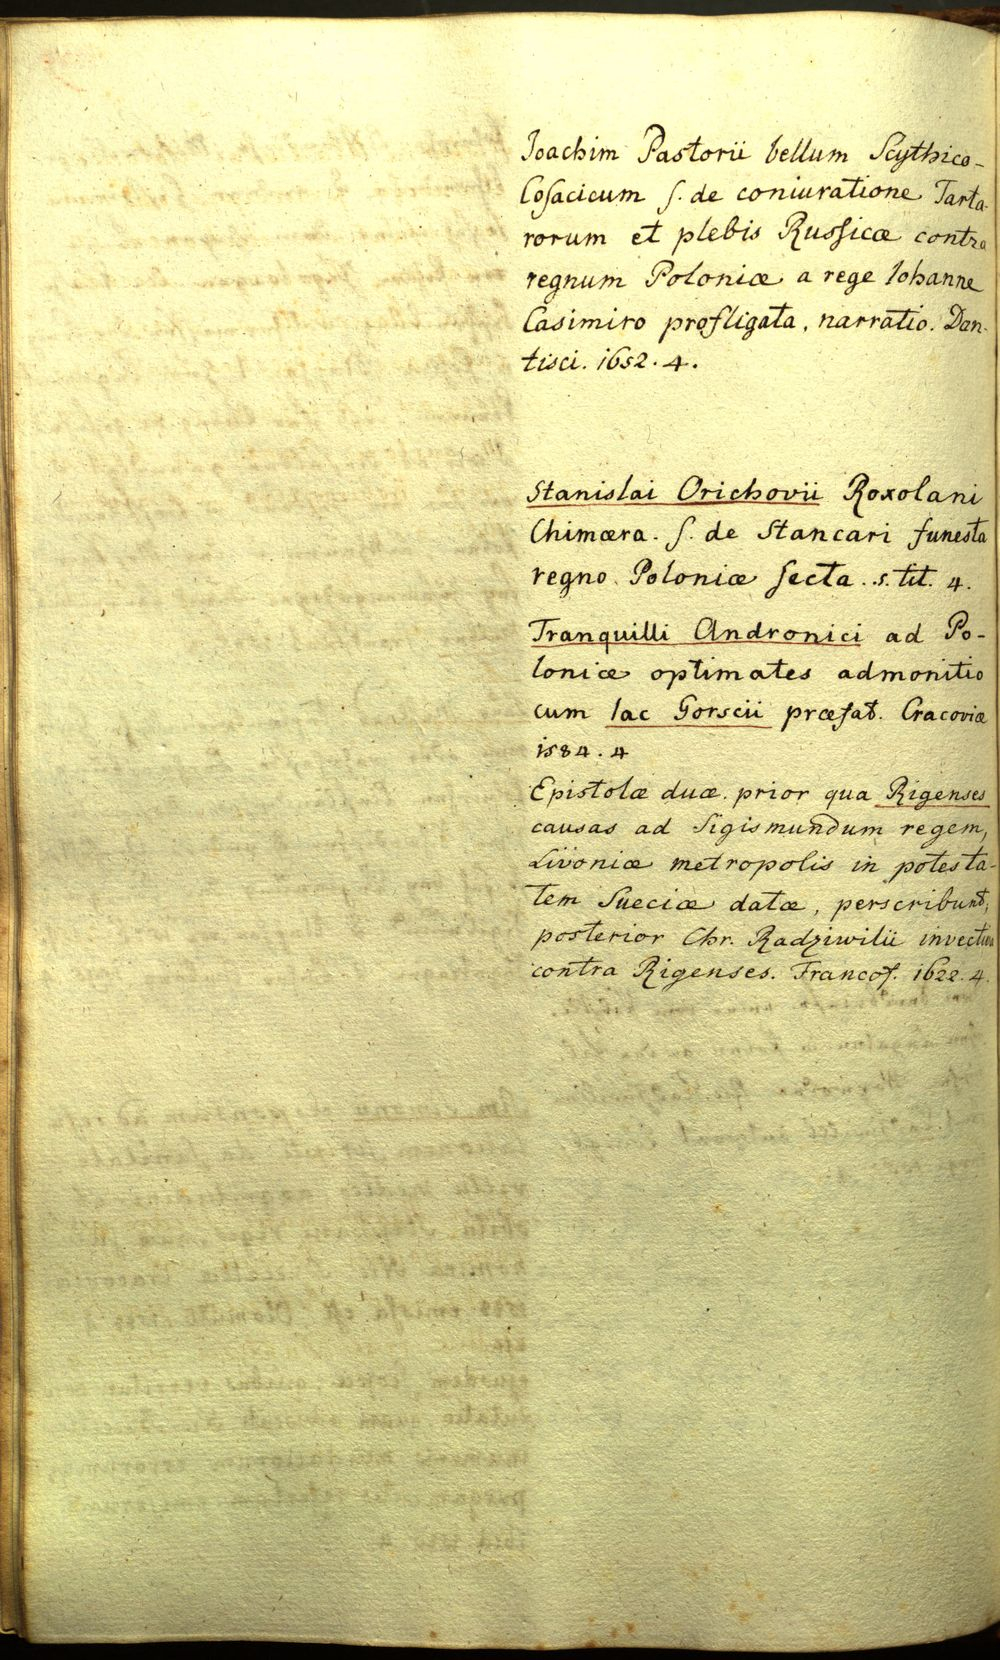 Joachim Pastorii bellum Scythico-
Cosacicum s. de coniuratione Tarta-
rorum et plebis Russicæ contra
regnum Poloniæ a rege Iohanne
Casimiro profligata, narratio. Dan-
tisci. 1652. 4.
Stanislai Orichovii Roxolani
Chimæra. s. de Stancari funesta
regno Poloniæ secta. s. tit. 4.
Tranquilli Andronici ad Po-
loniæ optimates admonitio
cum Iac Gorscii præfat. Cracoviæ
1584. 4
Epistolæ duæ. prior qua Rigenses
causas ad Sigismundum regem,
Livoniæ metropolis in potesta-
tem Sueciæ datæ, perscribunt,
posterior Chr. Radziwilii
contra Rigenses. Francof. 1622. 4.